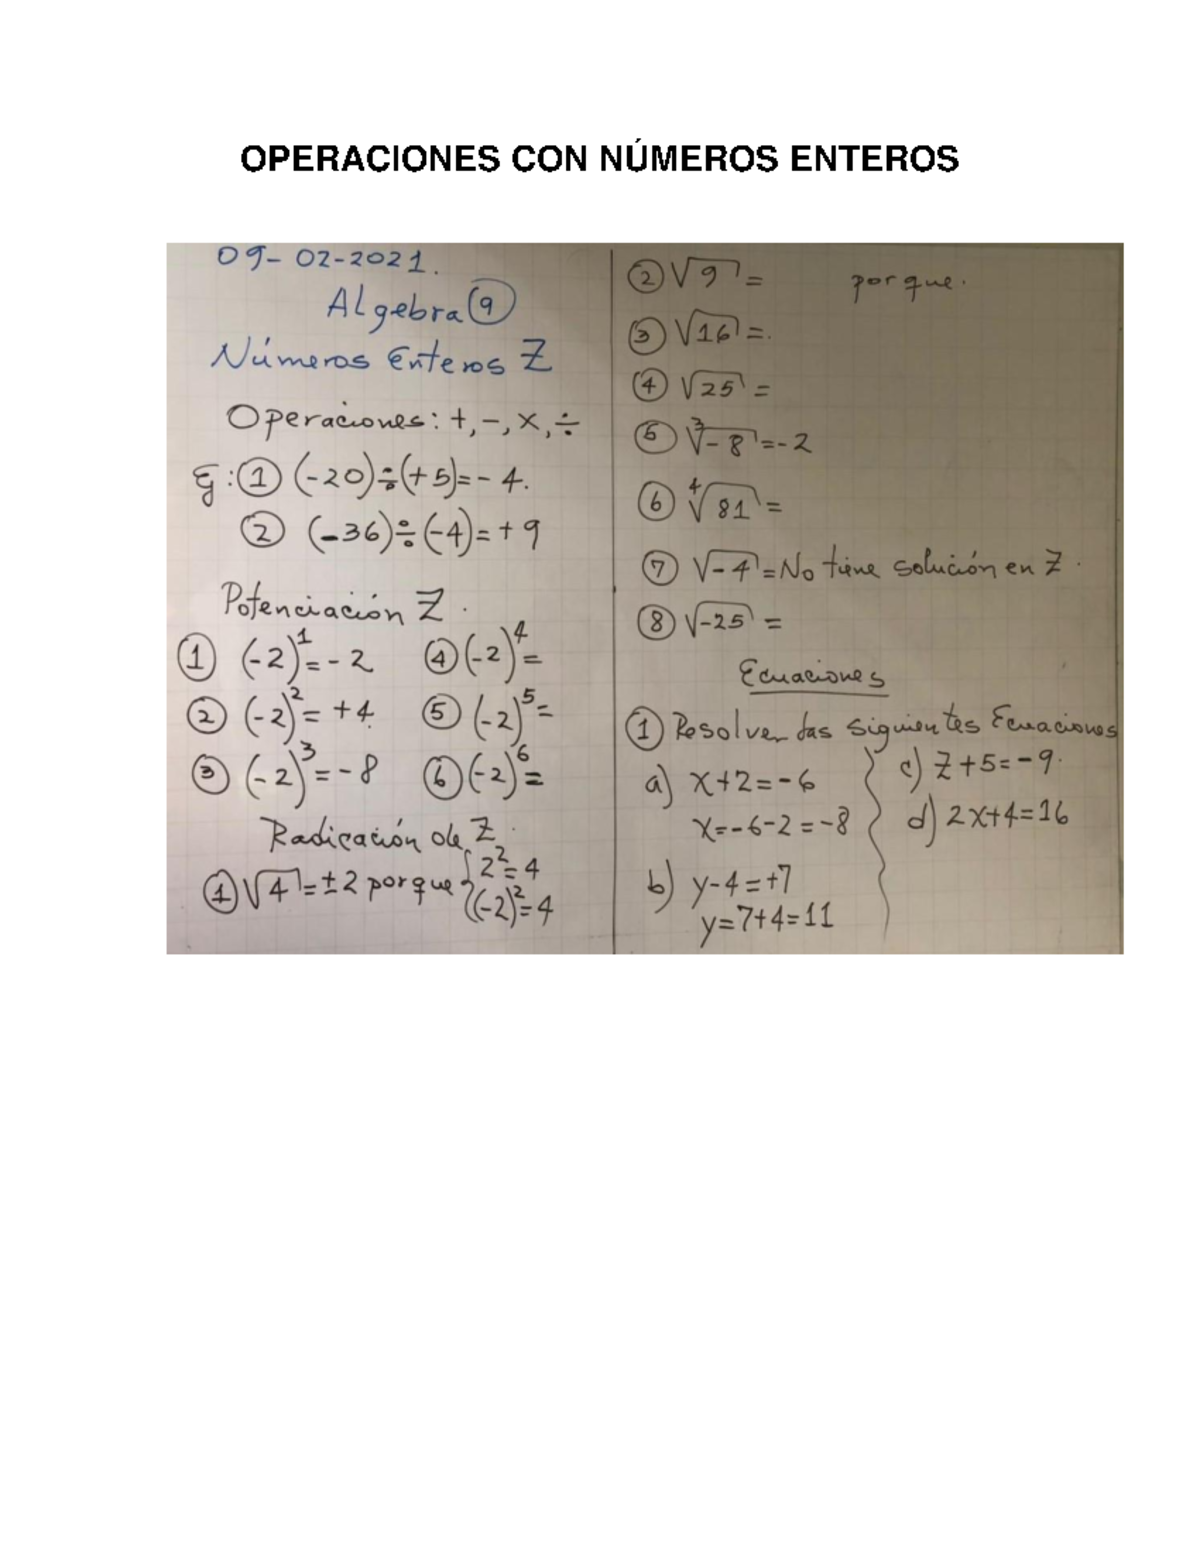 OPERACIONES CON NÚMEROS ENTEROS
09-02-2021.
Algebra ⑨
Números Enteros Z
Operaciones: +, -, x, ÷
Ej: ① (-20)÷(+5)=-4.
② (-36)÷(-4)=+9
Potenciación Z.
① (-2)¹=-2 ④ (-2)⁴=
② (-2)²=+4. ⑤ (-2)⁵=
③ (-2)³=-8 ⑥ (-2)⁶=
Radicación de Z.
① √4=±2 porque { 2²=4
(-2)²=4
② √9= porque.
③ √16=.
④ √25=
⑤ ³√-8=-2
⑥ ⁴√81=
⑦ √-4=No tiene solución en Z.
⑧ √-25=
Ecuaciones
① Resolver las siguientes Ecuaciones
a) x+2=-6
x=-6-2=-8
b) y-4=+7
y=7+4=11
c) Z+5=-9.
d) 2x+4=16